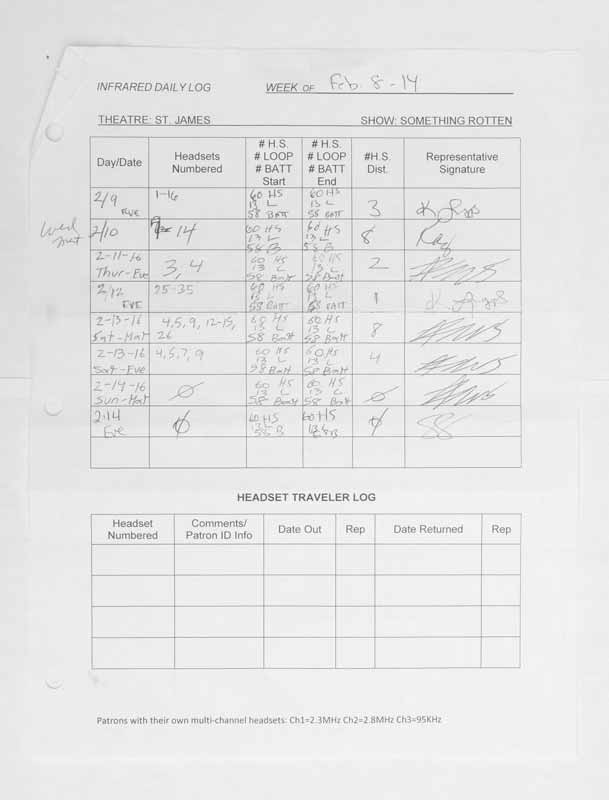 INFRARED DAILY LOG WEEK OF Feb. 8-14
THEATRE: ST. JAMES SHOW: SOMETHING ROTTEN
Day/Date Headsets Numbered # H.S. # LOOP # BATT Start # H.S. # LOOP # BATT End #H.S. Dist. Representative Signature
2/9 EVE 1-16 60 HS 13 L 58 BATT 60 HS 13 L 58 BATT 3
Wed mat 2/10 14 60 HS 13 L 58 B 60 HS 13 L 58 B 8
2-11-16 Thur-Eve 3, 4 60 HS 13 L 58 Batt 60 HS 13 L 58 Batt 2
2/12 EVE 25-35 60 HS 13 L 58 BATT 60 HS 13 L 58 BATT 1
2-13-16 Sat-Mat 4, 5, 9, 12-15, 26 60 HS 13 L 58 Batt 60 HS 13 L 58 Batt 8
2-13-16 Sat-Eve 4, 5, 7, 9 60 HS 13 L 58 Batt 60 HS 13 L 58 Batt 4
2-14-16 Sun-Mat Ø 60 HS 13 L 58 Batt 60 HS 13 L 58 Batt Ø
2.14 Eve Ø 60 HS 13 L 58 B 60 HS 13 L 58 B Ø
HEADSET TRAVELER LOG
Headset Numbered Comments/ Patron ID Info Date Out Rep Date Returned Rep
Patrons with their own multi-channel headsets: Ch1=2.3MHz Ch2=2.8MHz Ch3=95KHz